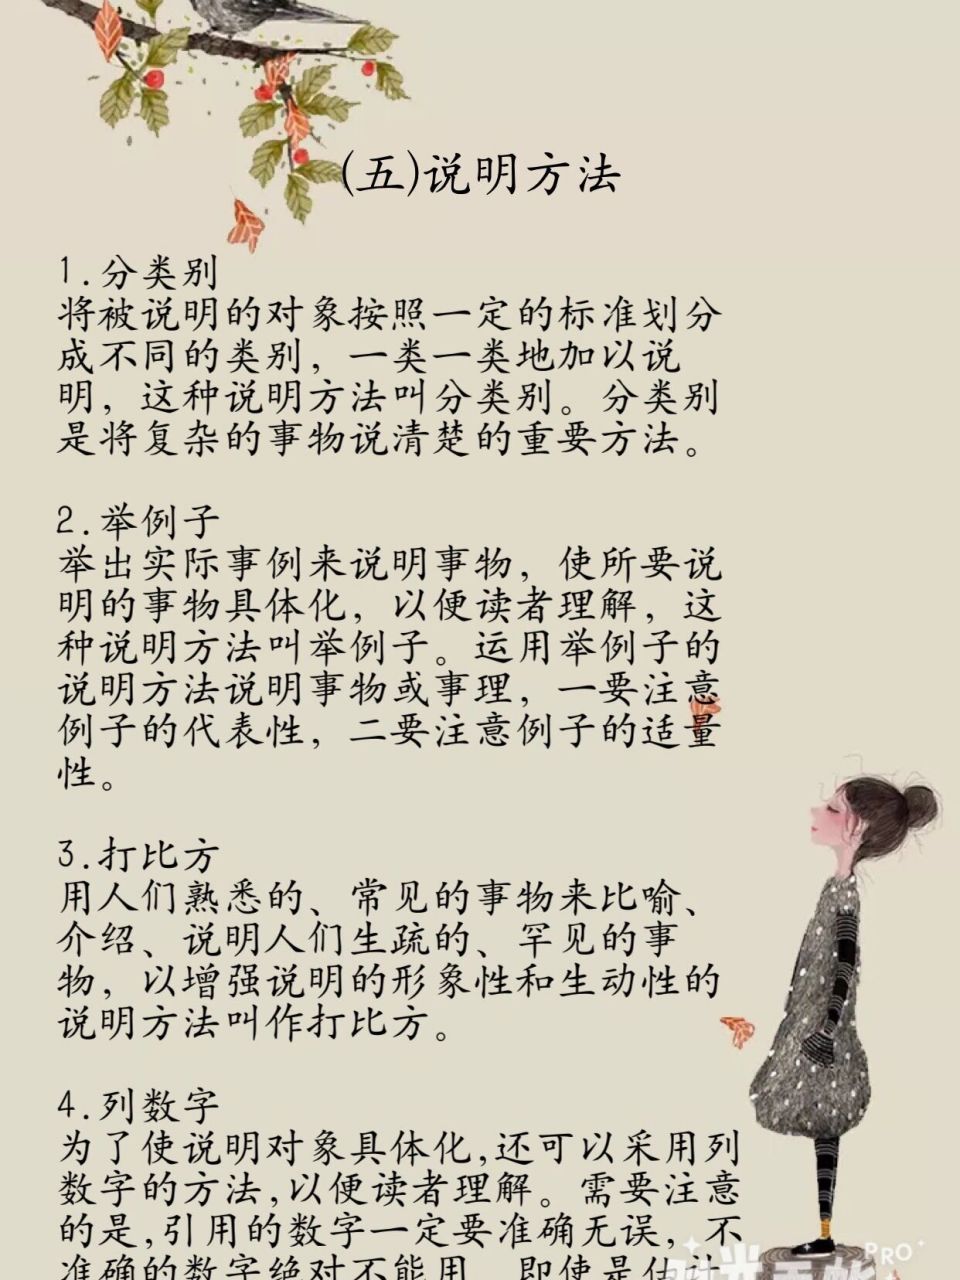 (五)说明方法
1.分类别
将被说明的对象按照一定的标准划分
成不同的类别，一类一类地加以说
明，这种说明方法叫分类别。分类别
是将复杂的事物说清楚的重要方法。
2.举例子
举出实际事例来说明事物，使所要说
明的事物具体化，以便读者理解，这
种说明方法叫举例子。运用举例子的
说明方法说明事物或事理，一要注意
例子的代表性，二要注意例子的适量
性。
3.打比方
用人们熟悉的、常见的事物来比喻、
介绍、说明人们生疏的、罕见的事
物，以增强说明的形象性和生动性的
说明方法叫作打比方。
4.列数字
为了使说明对象具体化,还可以采用列
数字的方法,以便读者理解。需要注意
的是,引用的数字一定要准确无误，不
准确的数字绝对不能用，即使是估计
PRO